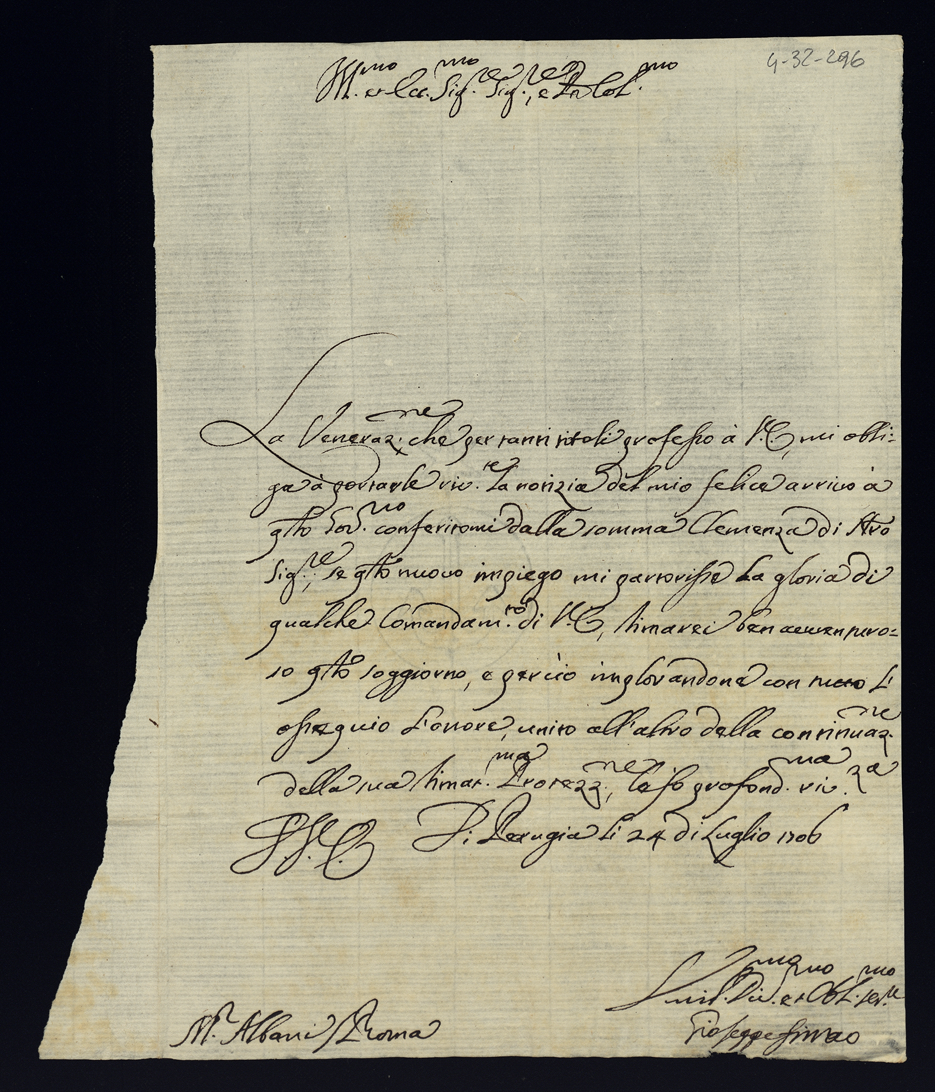 4-32-296
Ill.mo et Ecc.mo Sig.re Sig.re, e P.rn Col.mo
La Veneraz.ne che per tanti titoli professo à V.E., mi obli=
ga à portarle riv.te la notizia del mio felice arrivo à
q.sto Gov.no conferitomi dalla somma Clemenza di N.ro
Sig.re; se q.sto nuovo impiego mi partorisse la gloria di
qualche Comandam.to di V.E., stimarei ben avventuro=
so q.sto soggiorno, e perciò implorandone con tutto l'
ossequio l'onore, unito all'altro della continuaz.ne
della sua stimat.ma Protezz.ne, le fo profond.ma riv.za
D.V.E. Di Perugia li 24 di Luglio 1706
Umil.mo Div.mo et Obl.mo ser.re
Giuseppe
M.r Albani / Roma